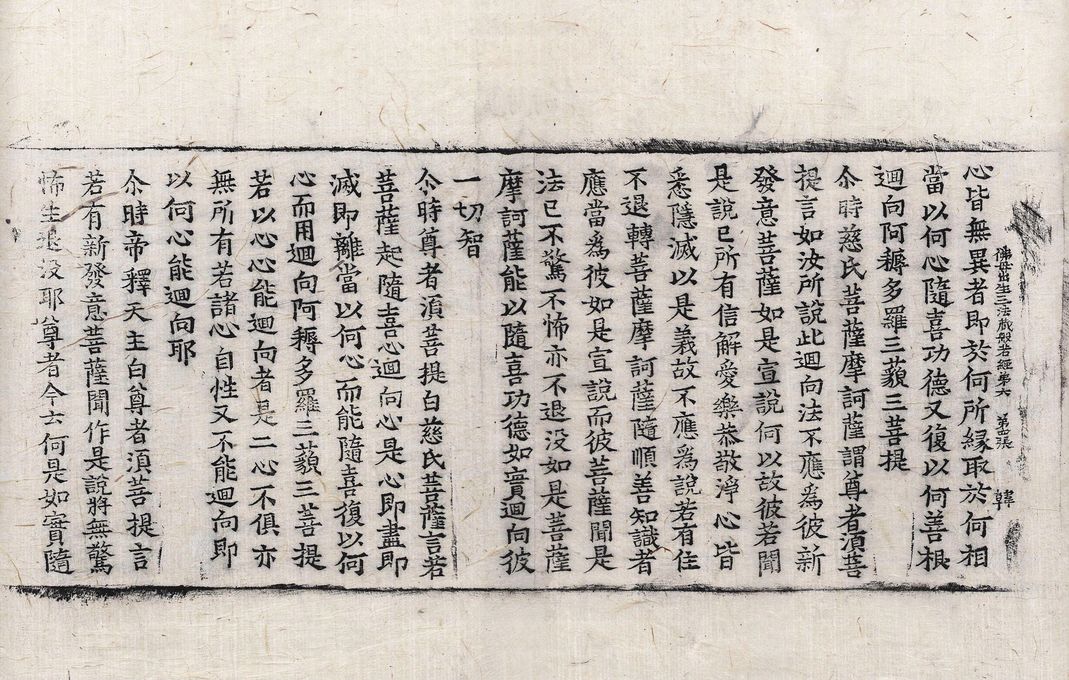 佛母出生三法藏般若經第六　第四張　韓
心皆無異者即於何所緣取於何相
當以何心隨喜功德又復以何善根
迴向阿耨多羅三藐三菩提
尒時慈氏菩薩摩訶薩謂尊者須菩
提言如汝所說此迴向法不應爲彼新
發意菩薩如是宣說何以故彼若聞
是說已所有信解愛樂恭敬淨心皆
悉隱滅以是義故不應爲說若有住
不退轉菩薩摩訶薩隨順善知識者
應當爲彼如是宣說而彼菩薩聞是
法已不驚不怖亦不退没如是菩薩
摩訶薩能以隨喜功德如實迴向彼
一切智
尒時尊者須菩提白慈氏菩薩言若
菩薩起隨喜心迴向心是心即盡即
滅即離當以何心而能隨喜復以何
心而用迴向阿耨多羅三藐三菩提
若以心心能迴向者是二心不俱亦
無所有若諸心自性又不能迴向即
以何心能迴向耶
尒時帝釋天主白尊者須菩提言
若有新發意菩薩聞作是說將無驚
怖生退没耶尊者今云何是如實隨